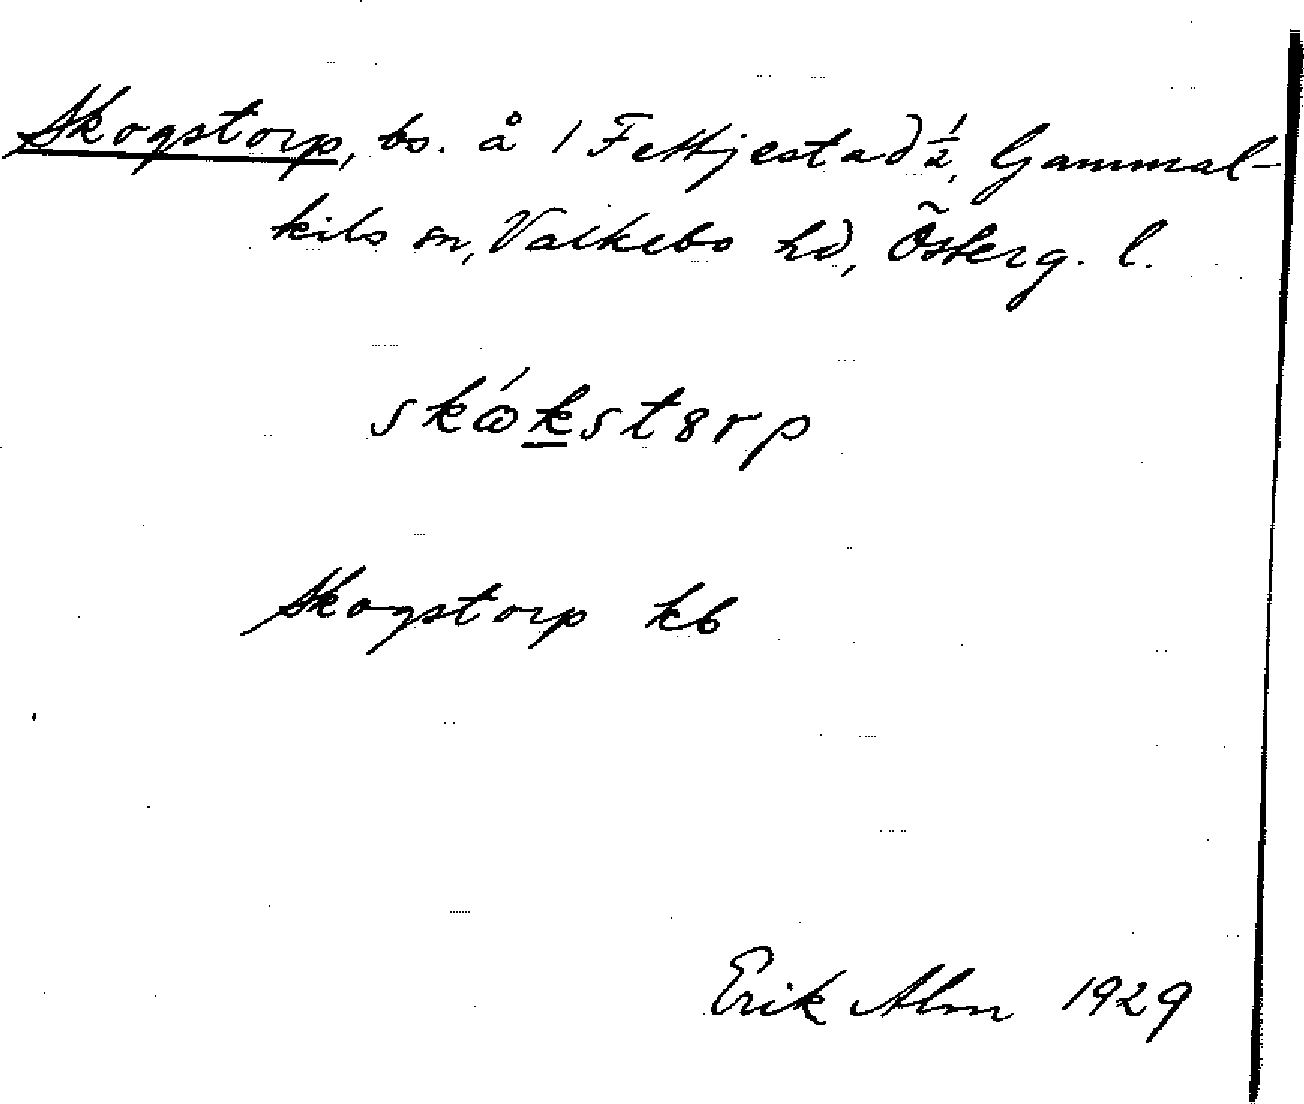 Skogstorp, bs. å 1 Fettjestad ½, Gammal-
kils sn, Valkebo hd, Österg. l.
skώkst8rp
Skogstorp kb
Erik Alm 1929